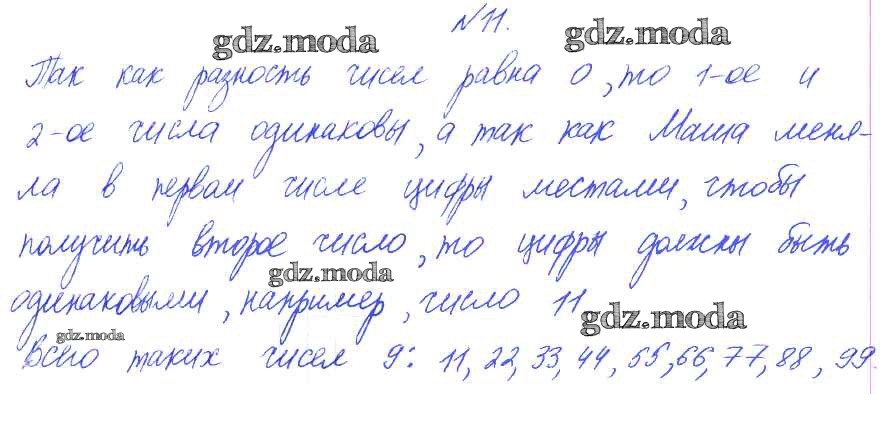 №11.
gdz.moda gdz.moda
Так как разность чисел равна 0, то 1-ое и
2-ое числа одинаковы, а так как Маша меня-
ла в первом числе цифры местами, чтобы
получить второе число, то цифры должны быть
gdz.moda
одинаковыми, например, число 11
gdz.moda
gdz.moda
Всего таких чисел 9: 11, 22, 33, 44, 55, 66, 77, 88, 99.